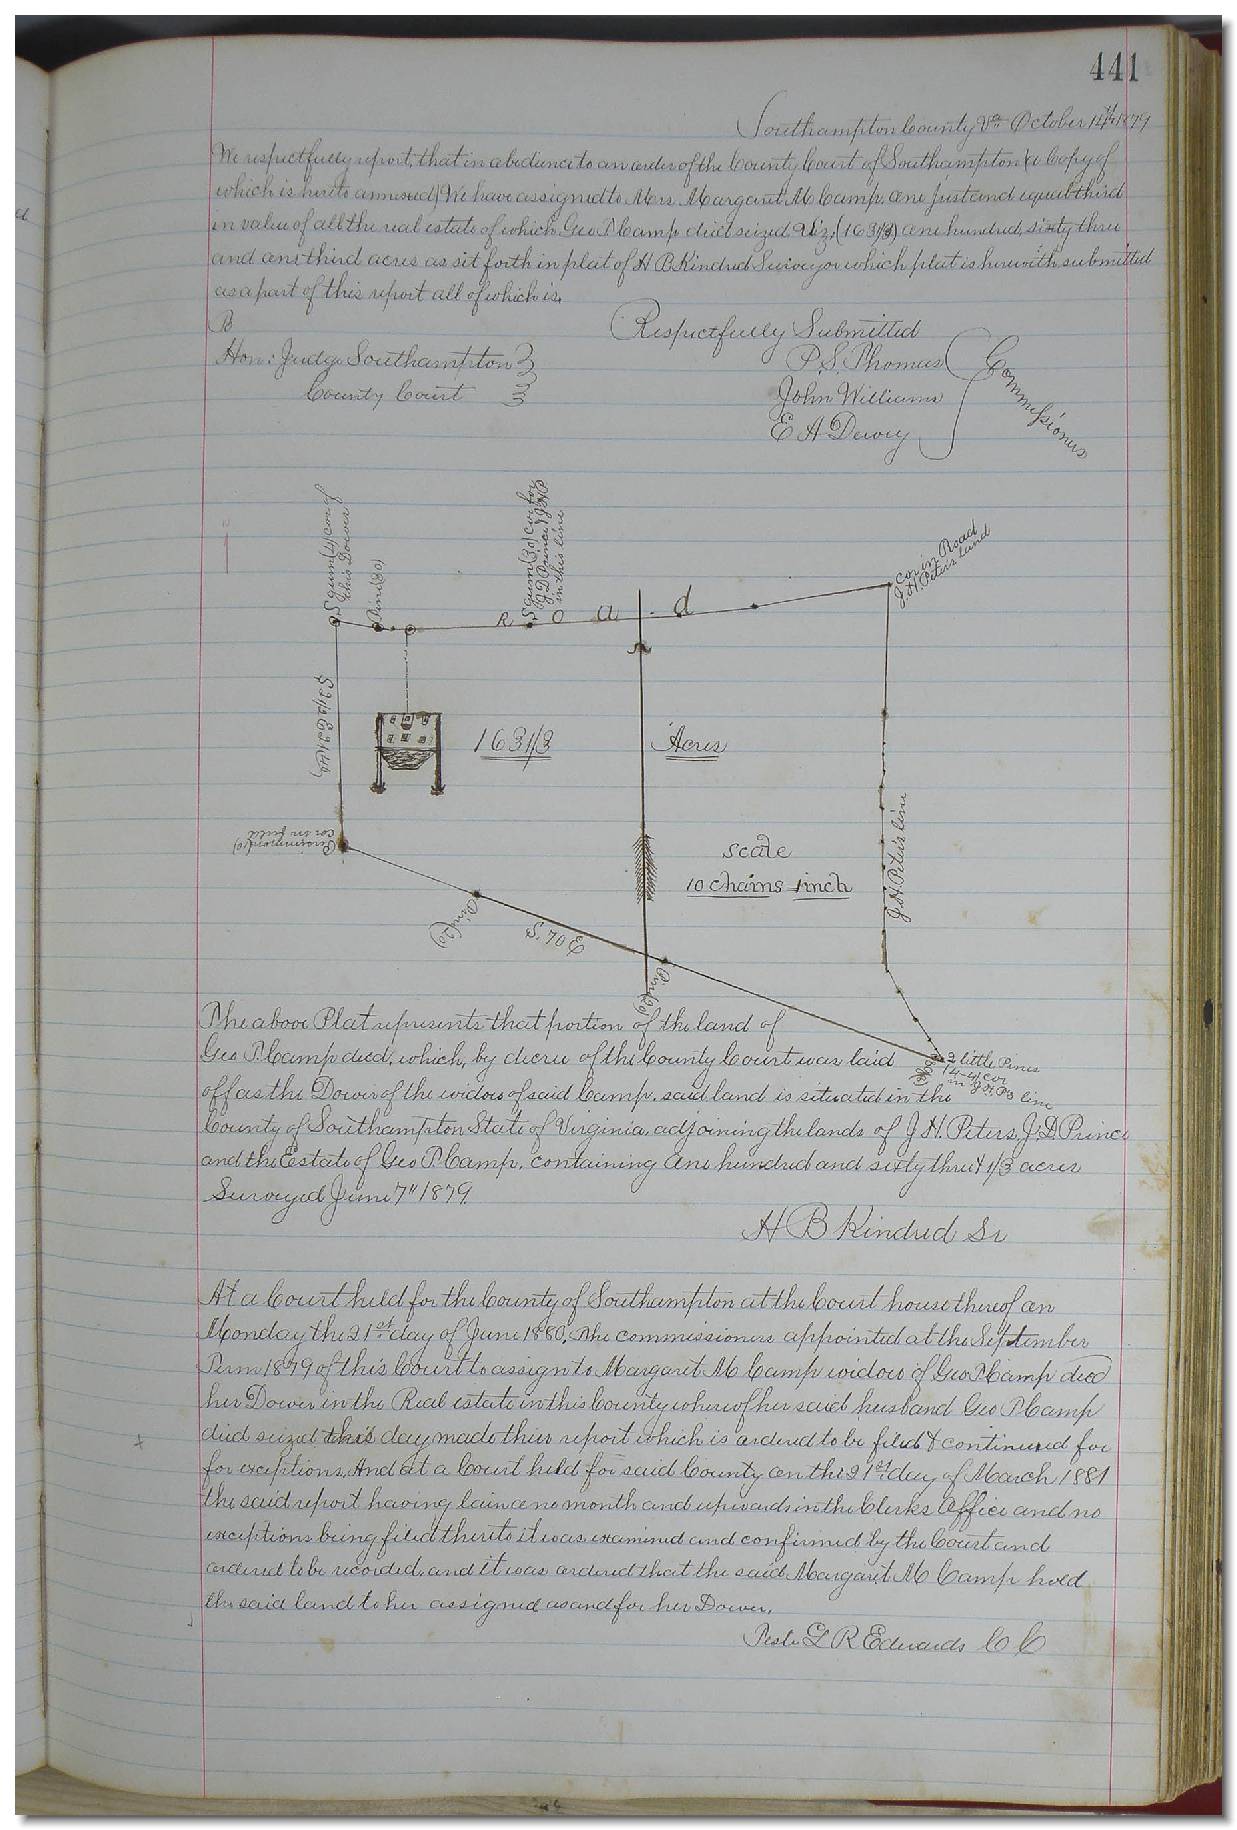 441
Southampton County Va October 14th 1879
We respectfully report, that in obedience to an order of the County Court of Southampton (a Copy of
which is hereto annexed) We have assigned to Mrs Margaret M Camp, one just and equal third
in value of all the real estate of which Geo P Camp died seized Viz; (163 1/3) one hundred, sixty three
and one third acres as set forth in plat of H B Kindred Surveyor which plat is herewith submitted
as a part of this report all of which is,
Respectfully Submitted
Hon: Judge Southampton
County Court
P. S. Thomas
John Williams
E A Dewry
Commissioners
S gum (4) cor of
this Dower
Pine (30)
S gum (30) cor for
J D Prince & J H P
in this line
cor in Road
J. H. Peters Land
R o a d
163 1/3 Acres
cor in field
scale
10 chains 1 inch
J H Peters line
Pine (2)
S. 70 E
Pine (2)
2 little Pines
14-4 cor
in J. H. Ps line
The above Plat represents that portion of the land of
Geo P. Camp decd, which, by decree of the County Court was laid
off as the Dower of the widow of said Camp. said land is situated in the
County of Southampton State of Virginia, adjoining the lands of J H. Peters, J. D. Prince
and the Estate of Geo P. Camp, containing One hundred and sixty three & 1/3 acres
Surveyed June 7" 1879.
H B Kindred Sr
At a Court held for the County of Southampton at the Court house thereof on
Monday the 21st day of June 1880. The commissioners appointed at the September
Term 1879 of this Court to assign to Margaret M Camp widow of Geo P Camp decd
her Dower in the Real estate in this County whereof her said husband Geo P Camp
died seized this day made their report which is ordered to be filed & continued for
for exceptions. And at a Court held for said County on the 21st day of March 1881
the said report having lain one month and upwards in the Clerks Office and no
exceptions being filed thereto it was examined and confirmed by the Court and
ordered to be recorded, and it was ordered that the said Margaret M Camp hold
the said land to her assigned as and for her Dower.
Teste L R Edwards C C